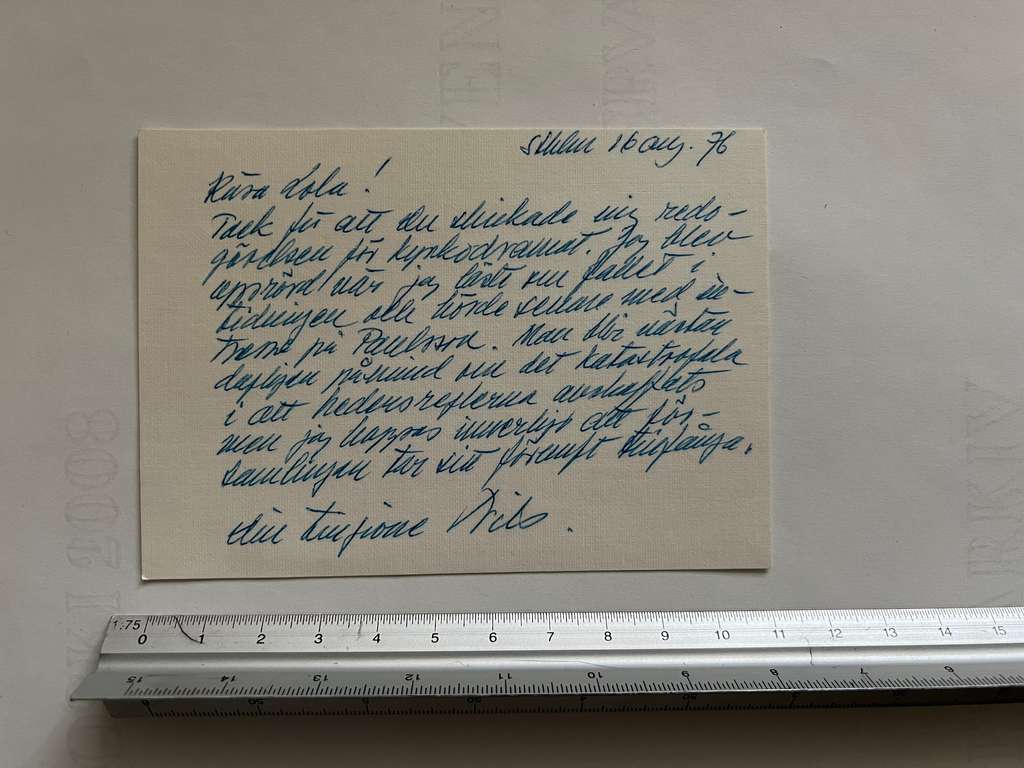 Sthlm 16 aug. 76
Kära Lola!
Tack för att du skickade mig redo-
görelsen för kyrkodramat. Jag blev
upprörd när jag läste om fallet i
tidningen och hörde senare med in-
tresse på Paulsson. Man blir nästan
dagligen påmind om det katastrofala
i att hedersreglerna avskaffats
men jag hoppas innerligt att för-
samlingen tar sitt förnuft tillfånga.
din tillgivne Nils.
1.75
0 1 2 3 4 5 6 7 8 9 10 11 12 13 14 15
15 14 13 12 11 10 9 8 7 6